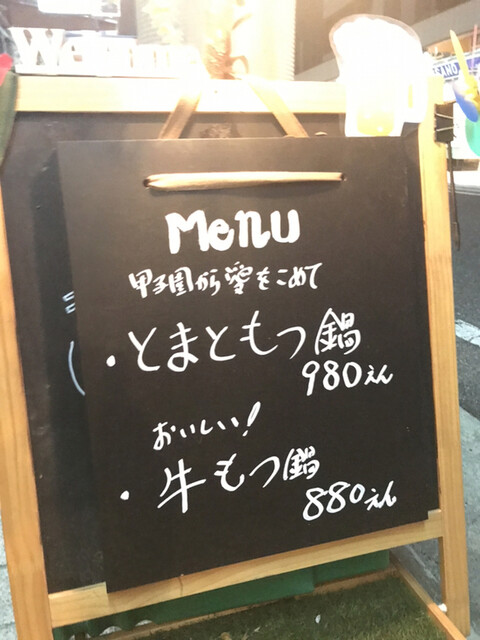 Welcome
Menu
甲子園から愛をこめて
・とまともつ鍋
980えん
おいしい!
・牛もつ鍋
880えん